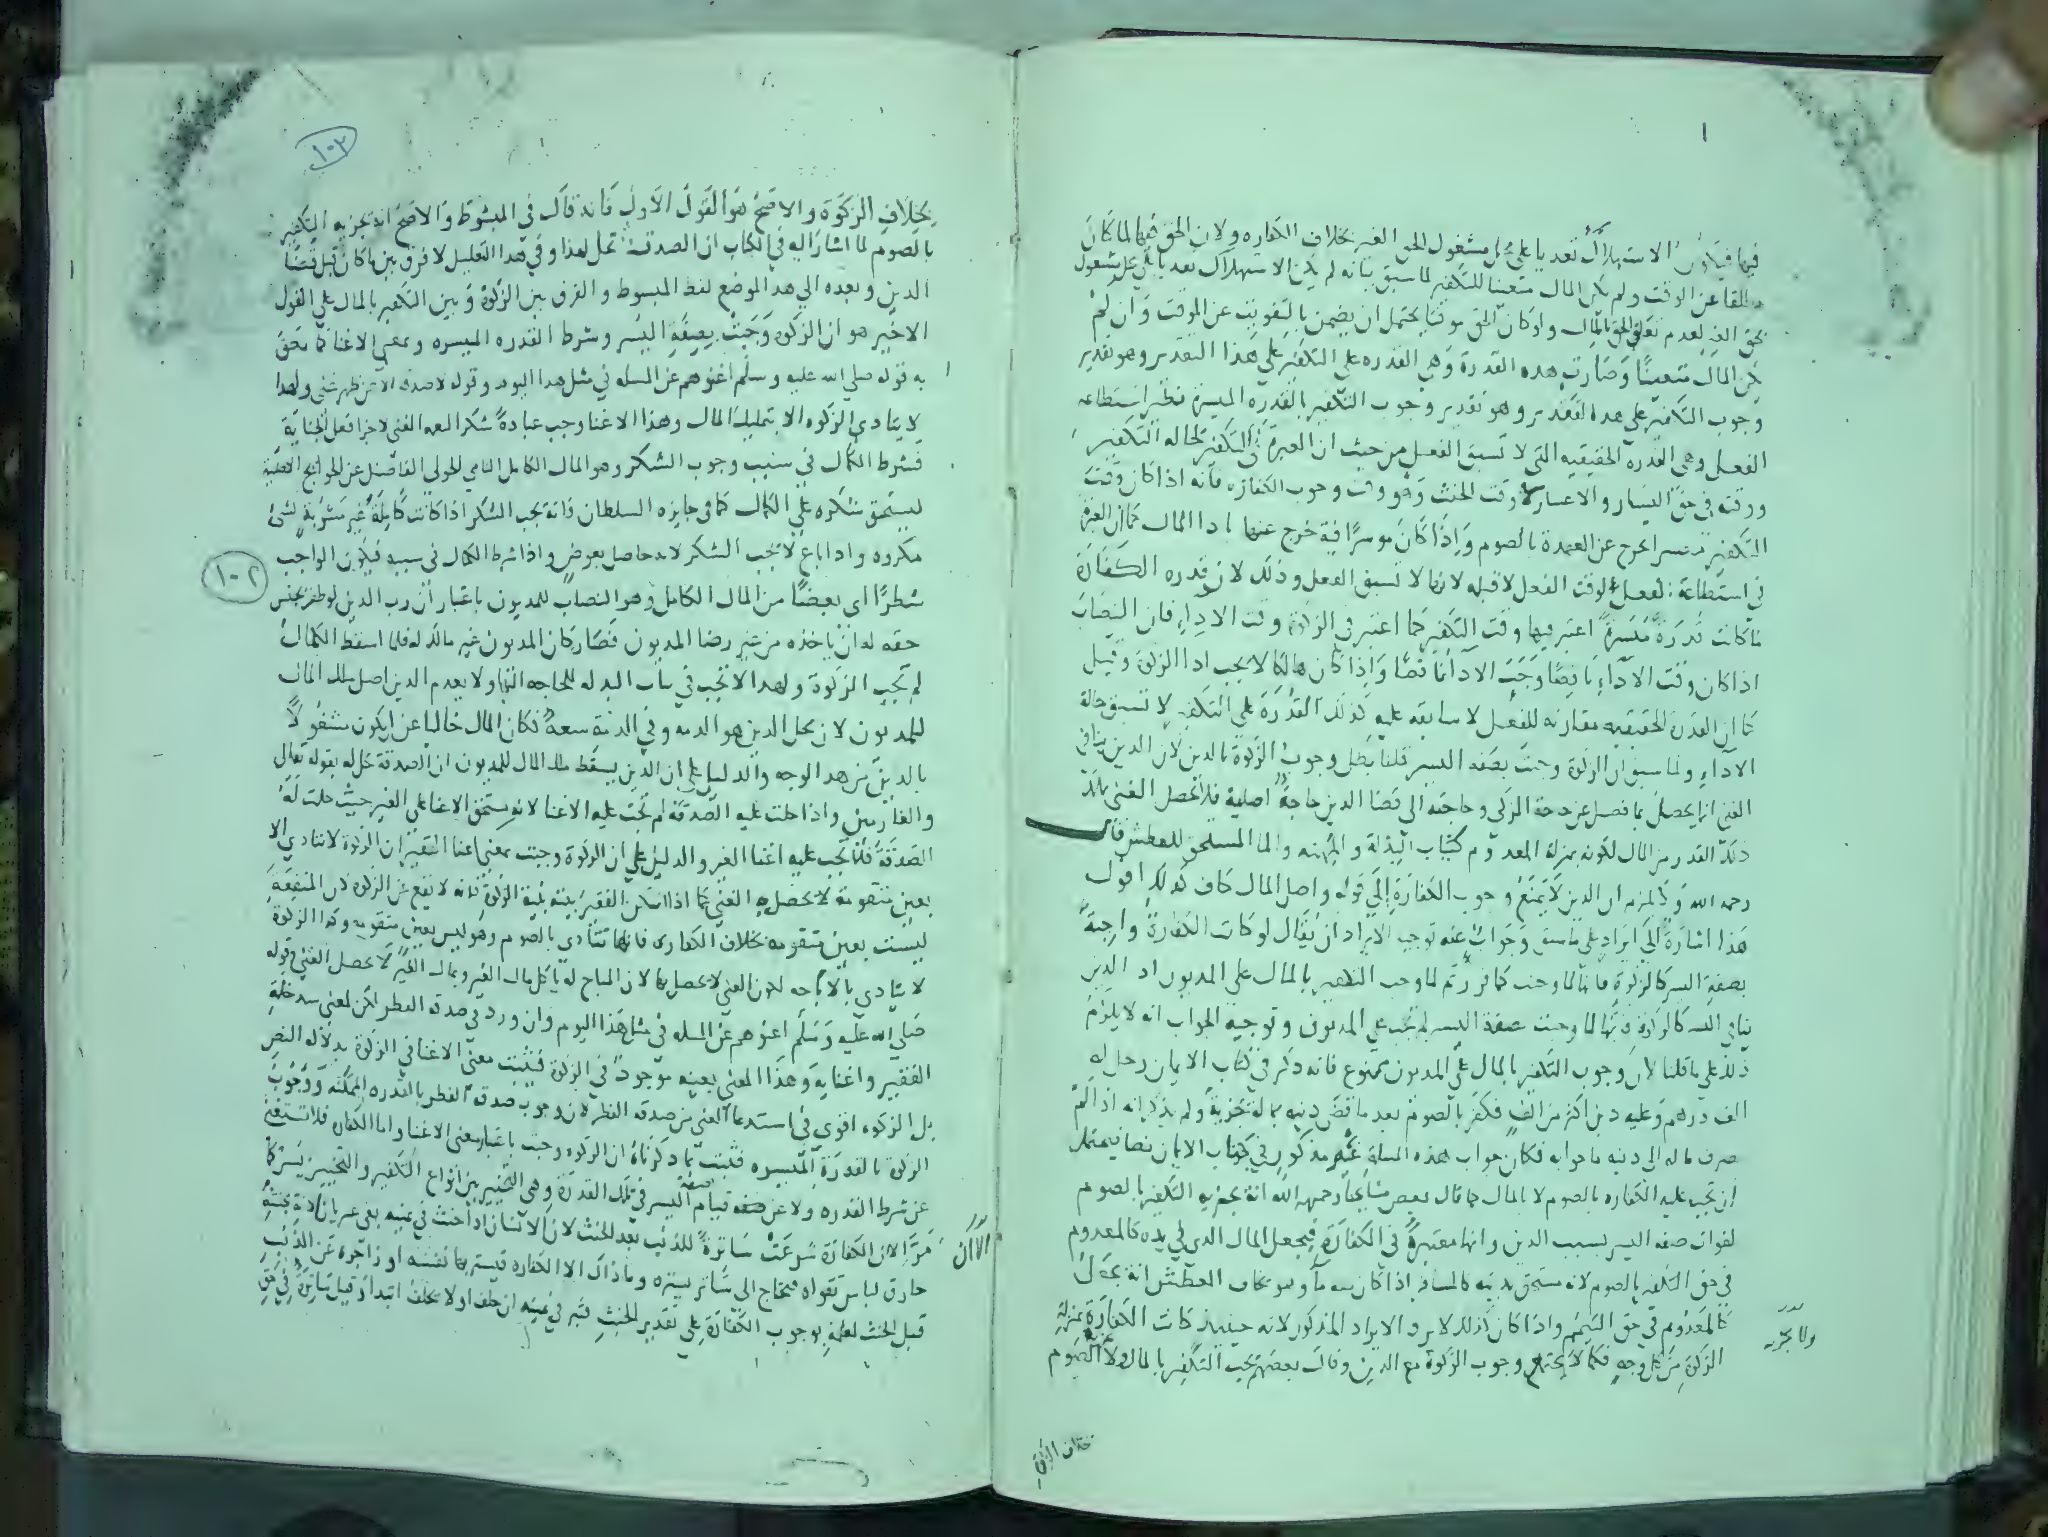 فيها فيكون الاستهلاك تعديا على محل مشغول لحق الغير بخلاف الكفاره ولان الحق فيها لما كان
مطلقا عن الوقت ولم يكن المال متعينا للتكفير لما سبق بيانه لم يكن الاستهلاك تعديا على محل مشغول
بحق الغير لعدم تعلق الحق بالمال واذ كان الحق موقتا يحتمل ان يضمن بالتفويت عن الوقت وان لم
يكن المال متعينًا وَصَارت هذه القدرة وهي القدره على التكفير على هذا التقدير وهو تقدير
وجوب التكفير على هذا التقدير وهو تقدير وجوب التكفير بالقدره الميسرة نظير استطاعه
الفعل وهي القدره الحقيقيه التي لا تسبق الفعل من حيث ان العبرة في التكفير لحاله التكفير
ووقته في حق اليسار والاعسار لا وقت الحنث وهو وقت وجوب الكفاره فانه اذا كان وقت
التكفير معسرا يخرج عن العهدة بالصوم وَاذا كان موسرًا فيه خرج عنها باداالمال كما ان العبرة
في استطاعة الفعل لوقت الفعل لا قبله لانها لا تسبق الفعل وذلك لان قدره الكفارة
لما كانت قدرة مُيسرة اعتبر فيها وقت التكفير كما اعتبر في الزكوة وقت الاداء فان النصاب
اذا كان وقت الاداء ناقصًا وجب الادا ناقصًا وَاذا كان هالكا لا يجب ادا الزكوة وقيل
كما ان القدرة الحقيقيه مقارنه للفعل لا سابقه عليه كذلك القدرة على التكفير لا تسبق حالة
الاداء ولما سبق ان الزكوة وجبت بصفه اليسر قلنا بَطل وجوب الزكوة بالدين لان الدين ينافي
الغني انما يحصل بما فضل عن حاجة المزكي وحاجته الى قضا الدين حاجة اصلية فلا يحصل الغني بملك
ذلك القدر من المال لكونه بمنزلة المعدوم كثياب البذلة والمهنه والما المستحق للعطش قال
رحمه الله وَلا يلزم ان الدين لا يمنع وجوب الكفارة الى قوله واصل المال كاف لذلك اقول
هذا اشارة الى ايراد على ما سبق وجواب عنه توجيه الايراد ان يقال لو كانت الكفارة واجبة
بصفة اليسر كالزكوة فانها لما وجبت كما قررتم لما وجب التكفير بالمال على المديون اذ الدين
ينافي اليسر كالزكوة فانها لما وجبت بصفة اليسر لم تجب على المديون وتوجيه الجواب انه لا يلزم
ذلك على ما قلنا لان وجوب التكفير بالمال على المديون ممنوع فانه ذكر في كتاب الايمان رجل له
الف درهم وعليه دين اكثر من الف فكفر بالصوم بعد ما قضى دينه بماله تجزيه ولم يذكر انه اذا لم
صرف ماله الى دينه ما جوابه فكان جواب هذه المسلة غير مذكور في كتاب الايمان نصا فيحتمل
ان يجب عليه الكفاره بالصوم لا بالمال كما قال بعض مشايخنا رحمهم الله انه يجزيه التكفير بالصوم
لفوات صفه اليسر بسبب الدين وانها معتبرة في الكفارة فيجعل المال الذي في يده كالمعدوم
في حق التكفير بالصوم لانه مستحق بدينه كالمسافر اذا كان معه ماء وهو يخاف العطش انه يجعل
كالمعدوم في حق التيمم واذا كان كذلك لا يرد الايراد المذكور لانه حينيذ كانت الكفارة بمنزلة
الزكوة من كل وجه فكما لا يجتمع وجوب الزكوة مع الدين وقال بعضهم يجب التكفير بالمال ولا الصوم
ولا يجزيه
بخلاف الزكوة
١٠٢
بخلاف الزكوة والاصح هو القول الاول فانه قال في المبسوط والاصح انه يجزيه التكفير
بالصوم لما اشار اليه في الكتاب ان الصدقة تحل لهذا وفي هذا التعليل لا فرق بين ما كان قبل قضا
الدين وبعده الى هذا الموضع لفظ المبسوط والفرق بين الزكوة وبين التكفير بالمال على القول
الاخير هو ان الزكوه وجبت بصفة اليُسر وشرط القدره الميسره وبمعنى الاغنا كما تحقق
به قوله صلى الله عليه وسلم اغنوهم عن المسله في مثل هذا اليوم وقوله لا صدقه الا عن ظهر غنى ولهذا
لا يتادى الزكوه الا بتمليك المال وهذا الاغنا وجب عبادةً شكرا لنعمه الغنى لا جزا فعل الجناية
فشرط الكمال في سبب وجوب الشكر وهو المال الكامل النامي الحولي الفاضل عن الحوايج الاصلية
ليستحق شكره على الكمال كما في جايزه السلطان فانه يجب الشكر اذا كانت كاملةً غير مشوبة لشئ
مكروه واذا باع لا يجب الشكر لانه حاصل بعوض واذا شرط الكمال في سببه فيكون الواجب
شطرًا اى بعضًا من المال الكامل وهو النصاب للمديون باعتبار ان رب الدين لو ظفر بجنس
١٠٢
حقه له ان ياخذه من غير رضا المديون فصار كان المديون غير مالك له فلما اسقط الكمال
لم تجب الزكوة ولهذا لا يجب في ثياب البذله للحاجه اليها ولا يعدم الدين اصل ملك المال
للمديون لان محل الدين هو الذمه وفي الذمة سعة فكان المال خاليا عن ان يكون مشغولاً
بالدين من هذا الوجه والدليل على ان الدين يسقط ملك المال للمديون ان الصدقة تحل له بقوله تعالى
والغارمين واذا حلت عليه الصدقه لم تجب عليه الاغنا لانه يستحق الاغنا على الغير حيث حلت له
الصدقة فلا يجب عليه اغنا الغير والدليل على ان الزكوة وجبت بمعنى اغنا الفقير ان الزكوة لا تتادى الا
بعين متقومة لا يحصل به الغنى كما اذا اسكن الفقير بيته بنية الزكوة فانه لا يقع عن الزكوة لان المنفعة
ليست بعين متقومه بخلاف الكفاره فانها تتادى بالصوم وهو ليس بعين متقومه وكذا الزكوة
لا يتادى بالاباحه لكون الغنى لا يحصل بها لان المباح له ياكل مال الغير وبمال الغير لا يحصل الغنى وقوله
صلى الله عليه وسلم اغنوهم عن المسله في مثل هذا اليوم وان ورد في صدقه الفطر لكن لمعنى سد خلة
الفقير واغنايه وهذا المعنى بعينه موجود في الزكوة فيثبت معنى الاغنا في الزكوة بدلاله النص
بل الزكوه اقوى في استدعا الغنى من صدقه الفطر لان وجوب صدقه الفطر بالقدره الممكنه ووجوب
الزكوة بالقدرة الميسره فثبت بما ذكرناه ان الزكوه وجبت باعتبار معنى الاغنا واما الكفاره فلا تستغني
عن شرط القدره ولا عن صفه قيام اليسر في تلك القدرة وهي التخيير بين انواع التكفير والتخيير تيسير كما
مَرّ الا ان الكفارة شرعت ساترةً للذنب بعد الحنث لان الانسان اذا حنث في يمينه بقى عريانا لانه بحنثه
الا ان
خارق لباس تقواه فيحتاج الى ساتر يستره وما ذاك الا الكفاره فيستر بها نفسه او زاجرة عن الذنب
قبل الحنث لعلمه بوجوب الكفارة على تقدير الحنث فيبر في يمينه ان حلف او لا يحلف ابتدا وقيل ساترة في حق